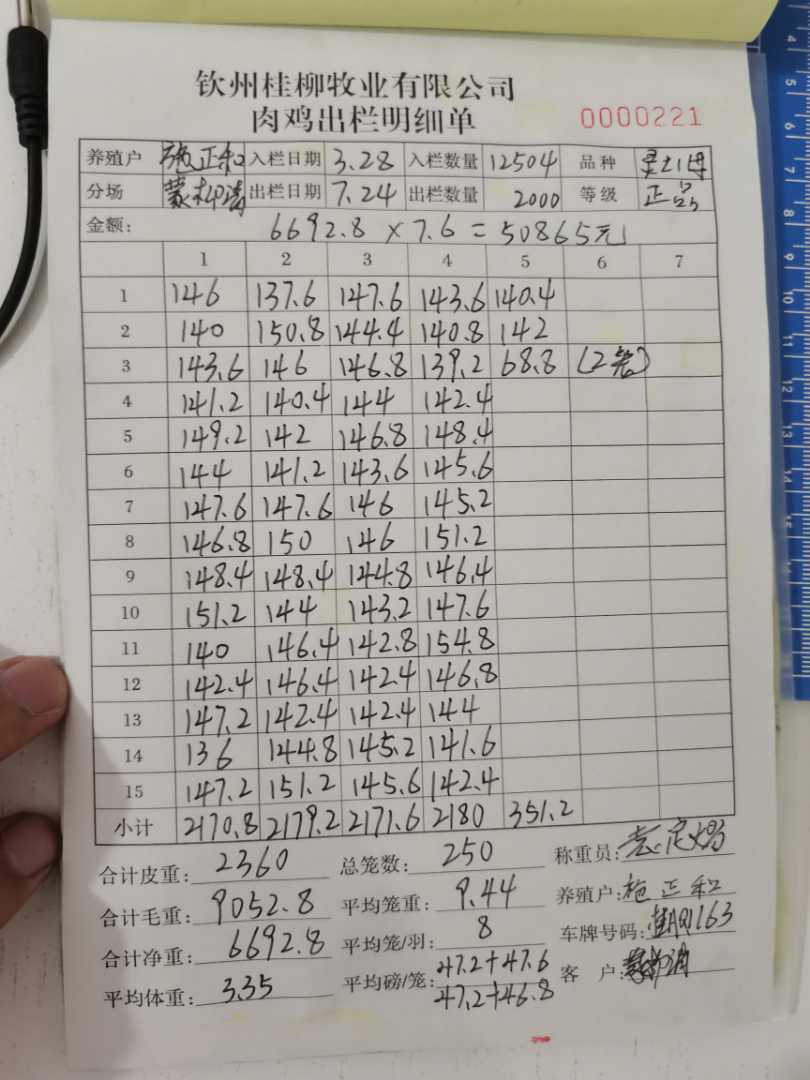 钦州桂柳牧业有限公司
肉鸡出栏明细单 0000221
养殖户 施正和 入栏日期 3.28 入栏数量 12504 品种
分场 出栏日期 7.24 出栏数量 2000 等级 正品
金额: 6692.8 × 7.6 = 50865元
1 2 3 4 5 6 7
1 146 137.6 147.6 143.6 140.4
2 140 150.8 144.4 140.8 142
3 143.6 146 146.8 139.2 68.8 (2笼)
4 141.2 140.4 144 142.4
5 149.2 142 146.8 148.4
6 144 141.2 143.6 145.6
7 147.6 147.6 146 145.2
8 146.8 150 146 151.2
9 148.4 148.4 144.8 146.4
10 151.2 144 143.2 147.6
11 140 146.4 142.8 154.8
12 142.4 146.4 142.4 146.8
13 147.2 142.4 142.4 144
14 136 144.8 145.2 141.6
15 147.2 151.2 145.6 142.4
小计 2170.8 2179.2 2171.6 2180 351.2
合计皮重: 2360 总笼数: 250 称重员:
合计毛重: 9052.8 平均笼重: 9.44 养殖户: 施正和
合计净重: 6692.8 平均笼/羽: 8 车牌号码:
平均体重: 3.35 平均磅/笼: 47.2+47.6 客户:
47.2+46.8